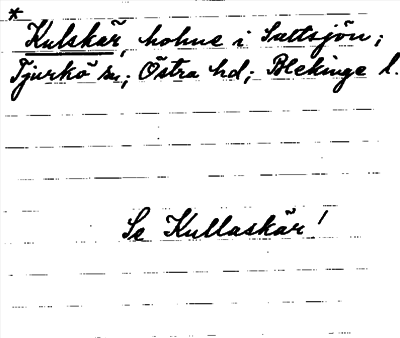 *
Kulskär, holme i Saltsjön;
Tjurkö sn; Östra hd; Blekinge l.
Se Kullaskär!